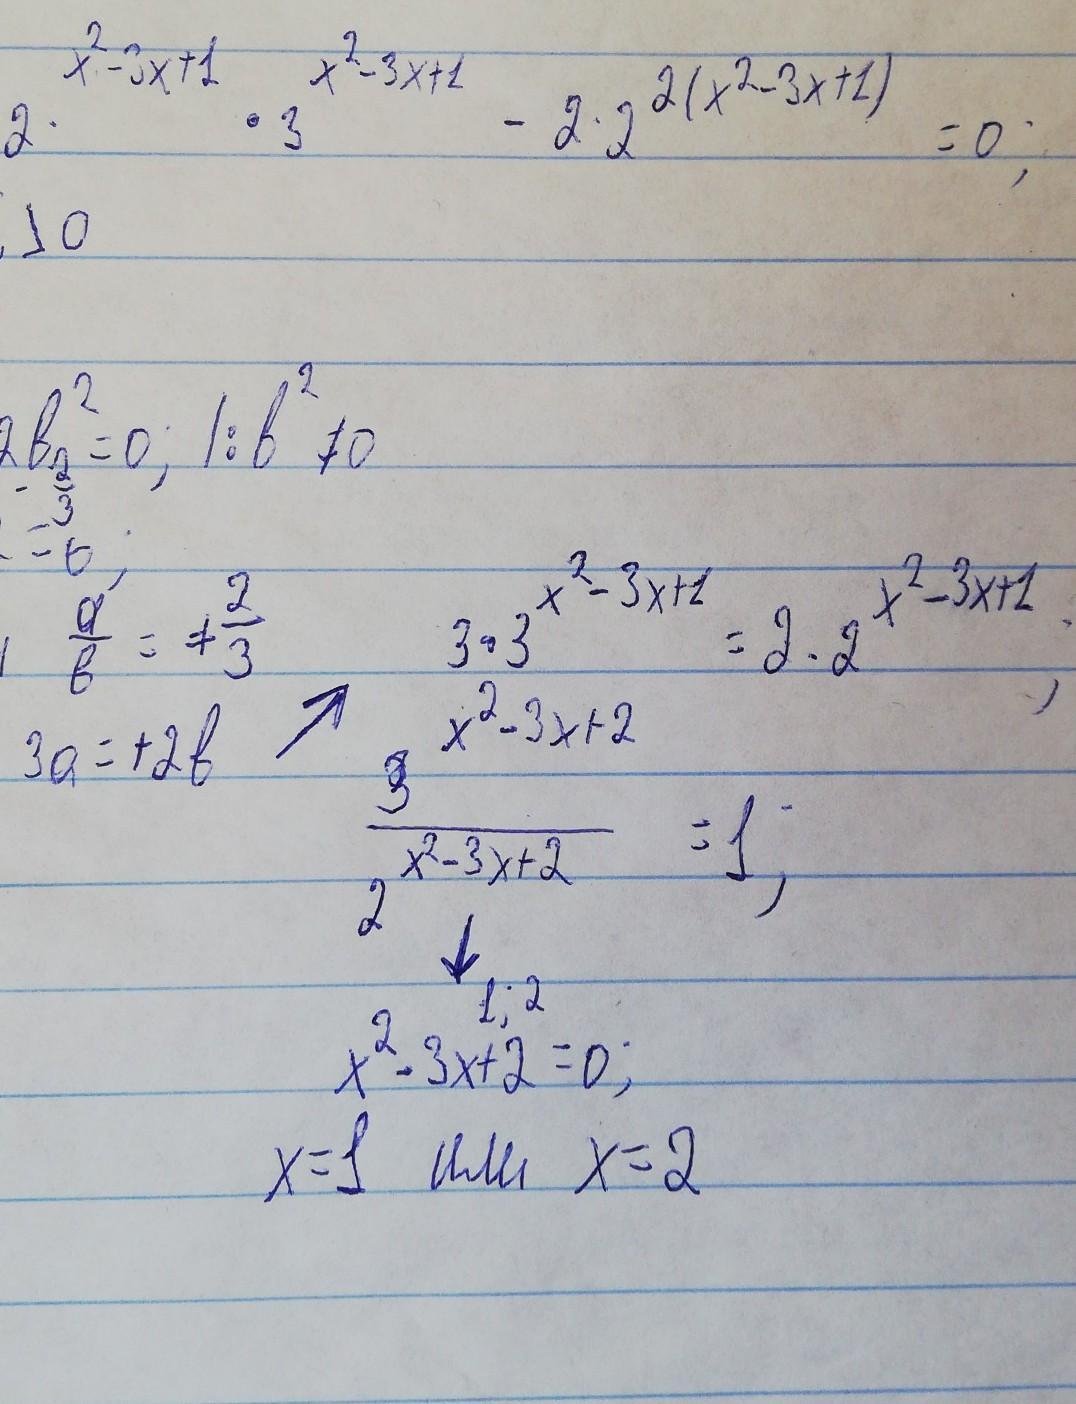 2^{x²-3x+1} · 3^{x²-3x+1} - 2·2^{2(x²-3x+1)} = 0;
10
2b² = 0; |:b² ≠0
a/b = +2/3
3·3^{x²-3x+1} = 2·2^{x²-3x+1};
3a = +2b ↗
3^{x²-3x+2} / 2^{x²-3x+2} = 1;
↓
1; 2
x²-3x+2=0;
x=1 или x=2